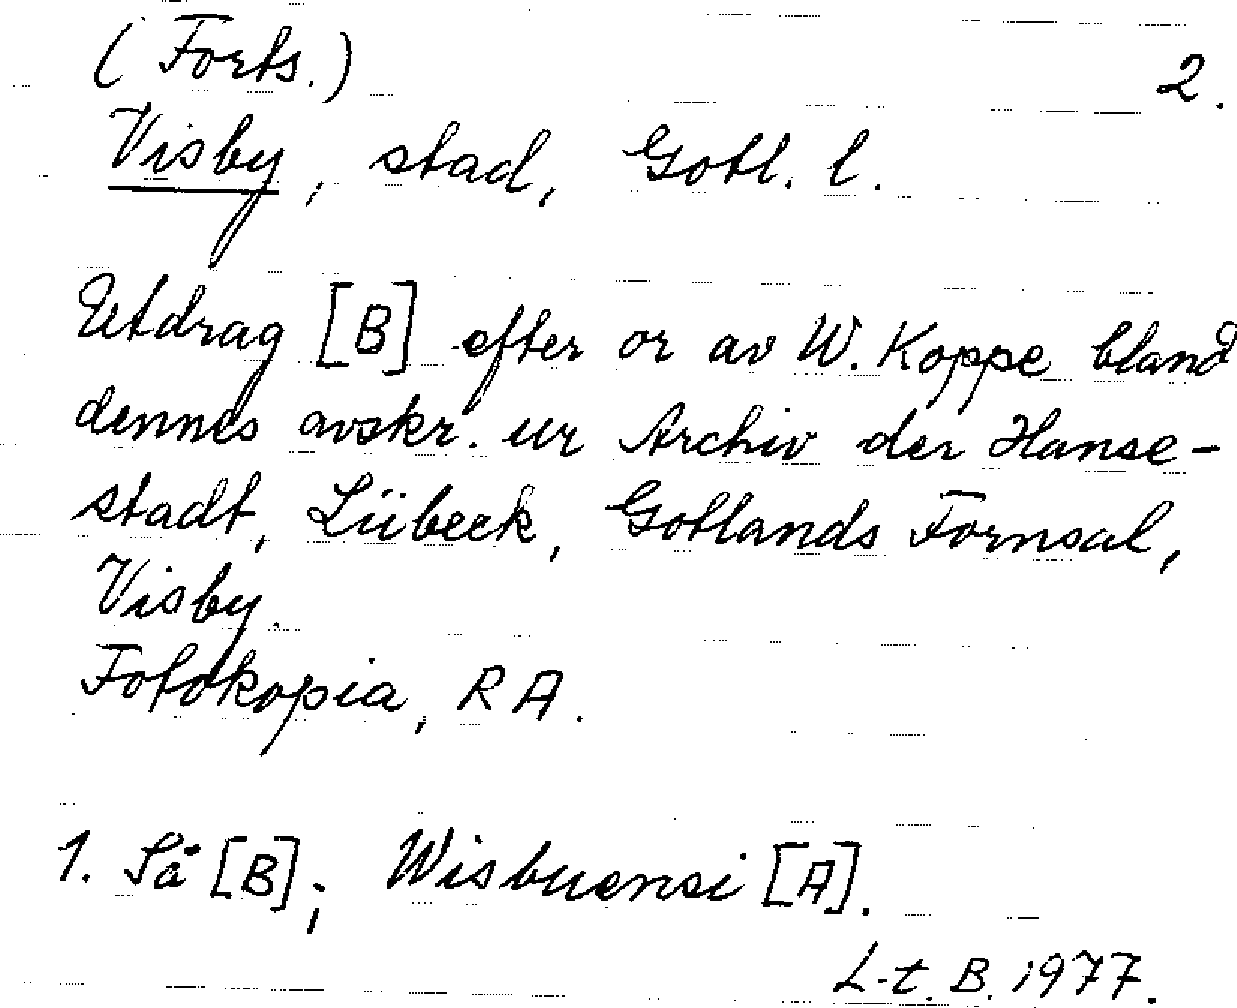 (Forts.) 2.
Visby, stad, Gotl. l.
Utdrag [B] efter or av W. Koppe bland
dennes avskr. ur Archiv der Hanse-
stadt, Lübeck, Gotlands Fornsal,
Visby.
Fotokopia, RA.
1. Så [B]; Wisbuensi [A].
L-t. B. 1977.